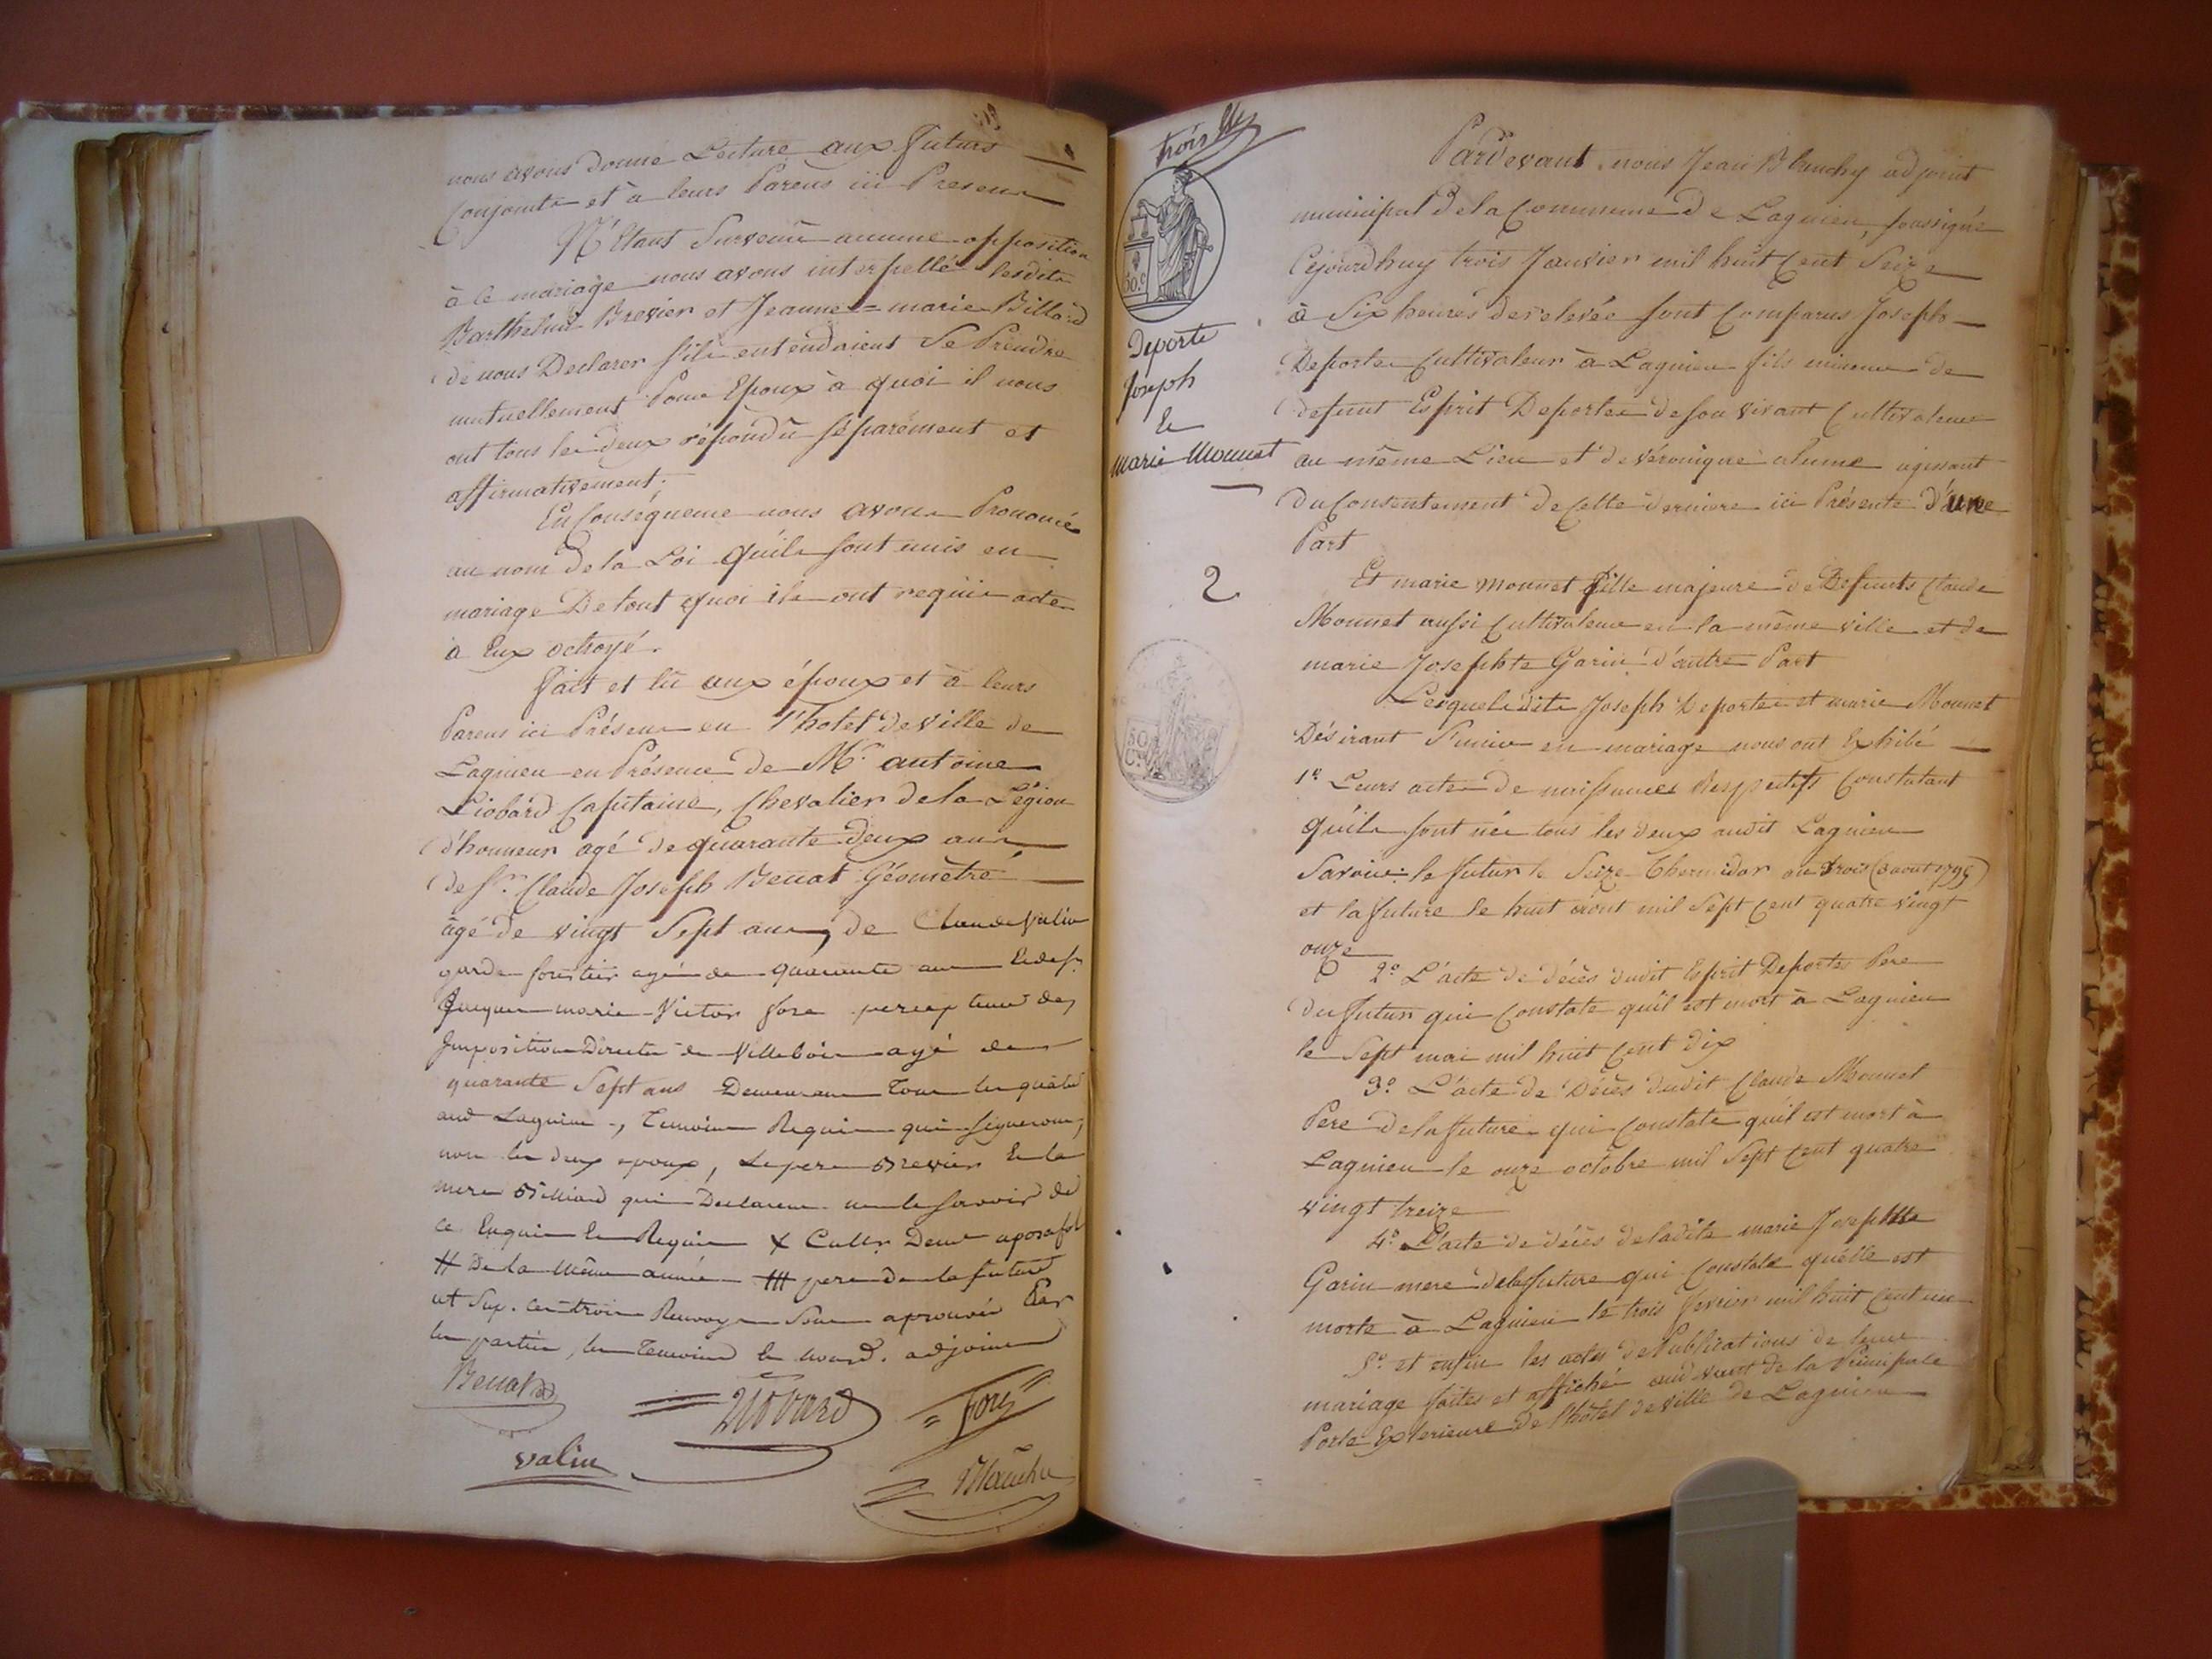 nous avons donné Lecture aux futurs
Conjoints et à leurs Parens ici Presens
N'Etant Survenù aucune opposition
à ce mariage nous avons interpellé lesdits
Barthelmi Brevier et Jeanne=marie Billiard
de nous Declarer s'ils entendaient Se Prendre
mutuellement Pour Epoux à quoi il nous
ont tous les deux répondù séparément et
affirmativement;
En Conséquence nous avons Prononcé
au nom de la Loi qu'ils sont unis en
mariage De tout quoi ils ont requis acte
à Eux octroyé.
Fait et lù aux époux et à leurs
Parens ici Présens en l'hotel de ville de
Lagnieu en Présence de Mr. antoine
Liobard Capitaine, Chevalier de la Légion
d'honneur agé de quarante deux ans
de Sr. Claude Joseph Benat Géomètre
âgé de vingt Sept ans, de Claude Valin
garde forestier agé de quarante ans Et de Sr.
Jacques marie Victor fore percepteur des
Imposition Directes de Villebois agé de
quarante Sept ans Demeurans Tous les quatre
aud Lagnieu, Temoins Requis qui signeront,
non les deux epoux, Le pere Brevier Et la
mere Billiard qui Declarent ne le savoir de
ce Enquis Et Requis X Cultr. Demt
# De la même année ## pere de la future
ut Sup. Ces trois Renvoys Sont aprouvés Par
les parties, les Temoins Et nousd. adjoint
Benat
Liobard
Foré
valin
Blanchy
trois
50.c
Deporte
Joseph
Et
Marie Monnet
2
50
C.
Pardevant nous Jean Blanchy adjoint
municipal De la Commune De Lagnieu, soussigné
Cejourdhuy trois Janvier mil huit Cent Seize
à Six heures de relevée sont Comparus Joseph
Deportes Cultivateur à Lagnieu fils mineur de
defunt Esprit Deportes de son vivant Cultivateur
au même Lieu et de véronique agissant
du Consentement de Cette derniere ici Présente d'une
Part
Et marie Monnet fille majeure de Defunts Claude
Monnet aussi Cultivateur en la même ville et de
marie Josephte Garin d'autre Part
Lesquels dits Joseph Deportes et marie Monnet
Désirant S'unir en mariage nous ont Exhibé
1o Leurs actes de naissances Respectifs Constatant
qu'ils sont nés tous les deux audit Lagnieu
Savoir: le futur le Seize Thermidor an trois (3 aout 1795)
et la future le huit aout mil Sept Cent quatre vingt
onze
2o L'acte de décès dudit Esprit Deportes Pere
du futur qui Constate qu'il est mort à Lagnieu
le Sept mai mil huit Cent dix
3o L'acte de Décès dudit Claude Monnet
Pere de la future qui Constate qu'il est mort à
Lagnieu le onze octobre mil Sept Cent quatre
vingt treize
4o L'acte de décès de ladite marie Josephte
Garin mere de la future qui Constate qu'elle est
morte à Lagnieu le trois fevrier mil huit Cent un
5o et enfin les actes de Publications de leur
mariage faites et affiché audvant de la Principale
Porte Exterieure de l'hôtel de ville de Lagnieu